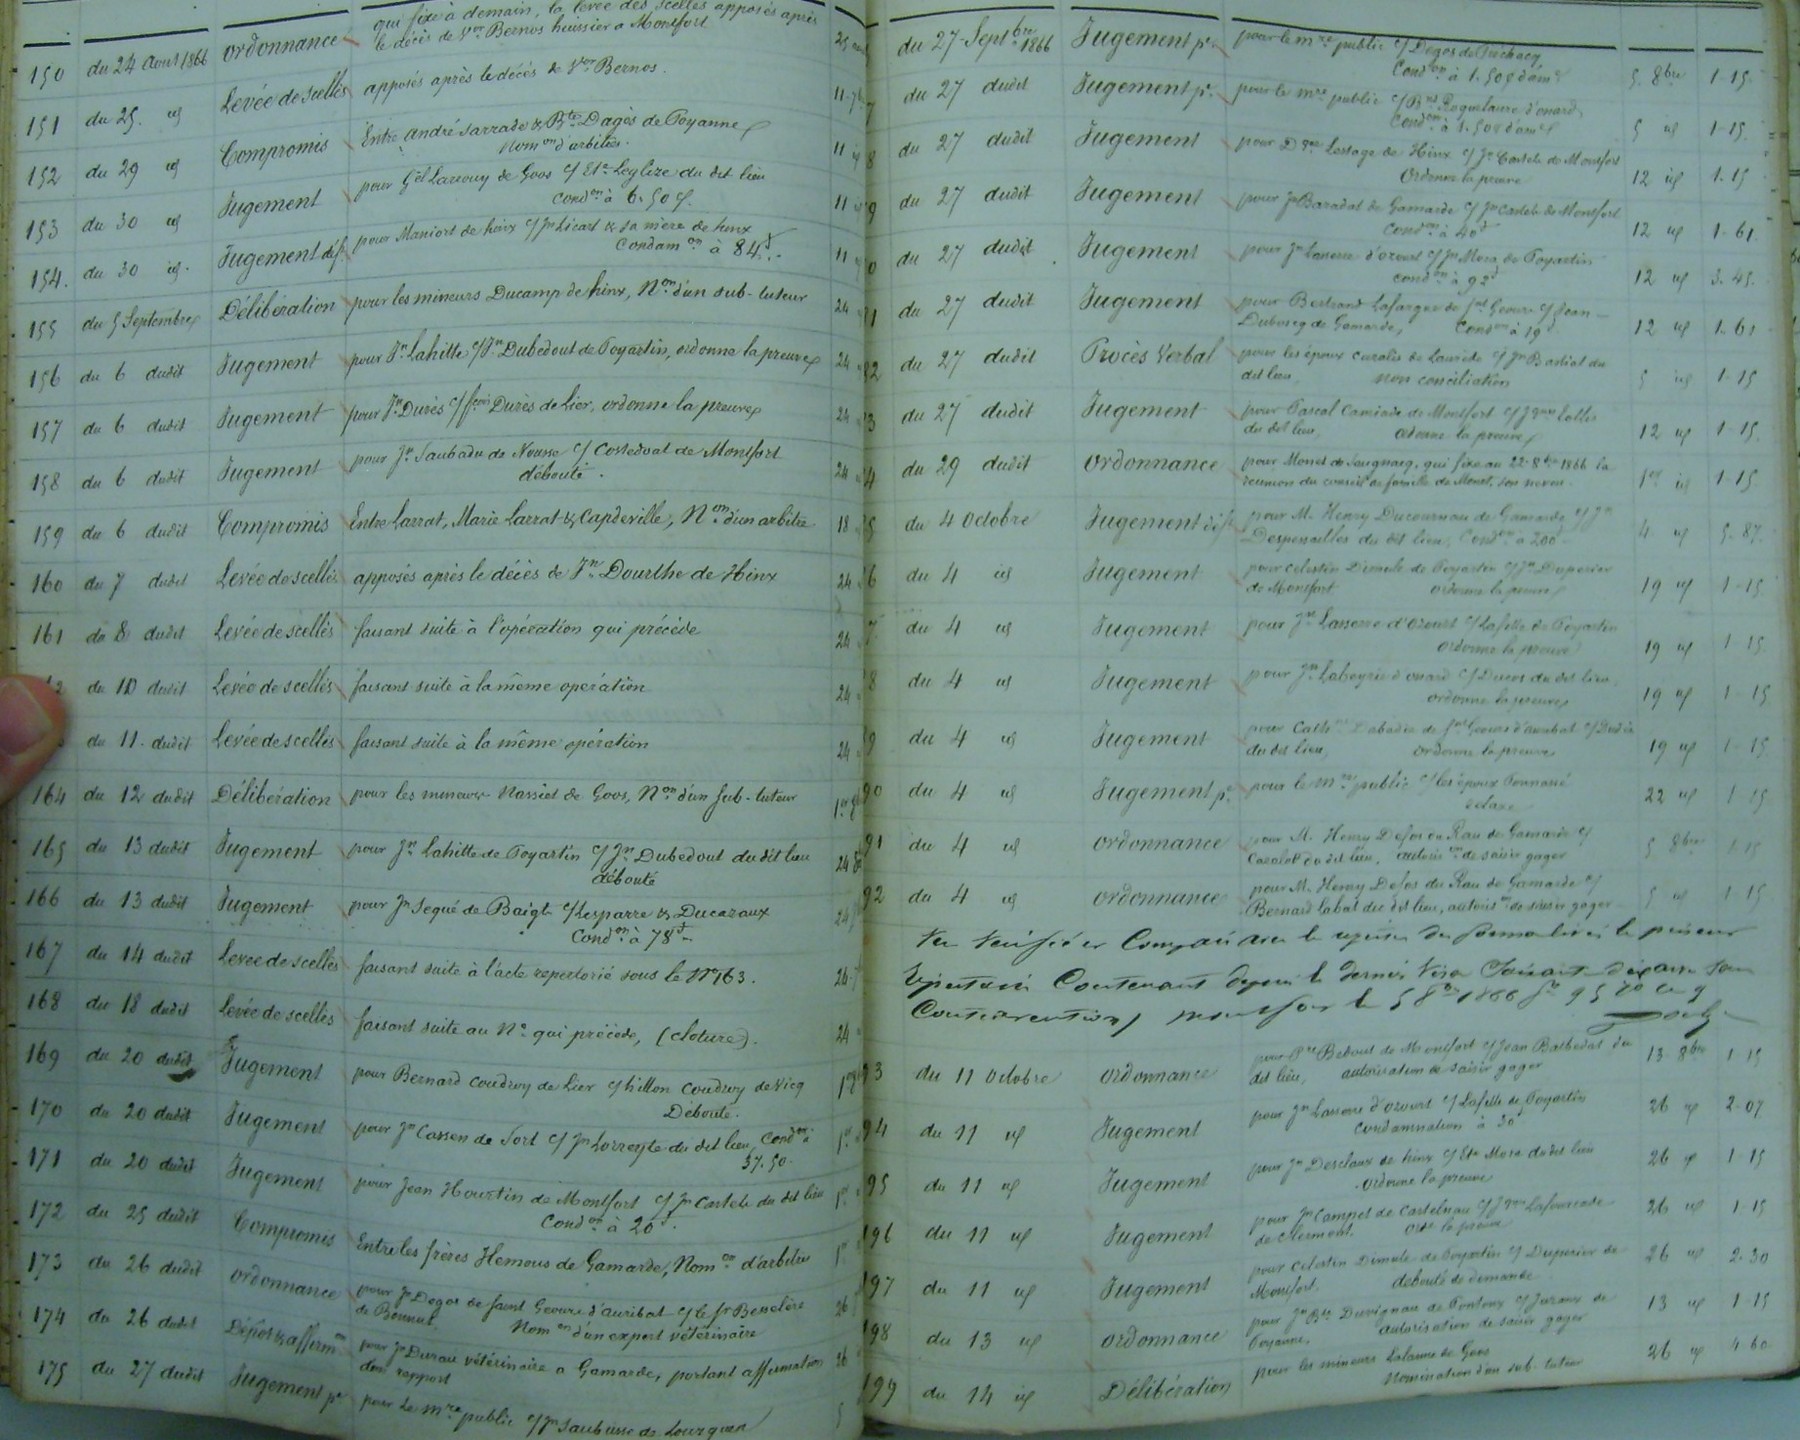 qui fixe à demain, la levée des scellés apposés après
150 du 24 Aout 1866 ordonnance le décès de Vor Bernos huissier a Montfort 25
151 du 25. id Levée de scellés apposés après le décès de Vor Bernos. 11
152 du 29 id Compromis Entre André Sarrade & Bte Dagès de Poyanne 11
Nomon d'arbitres.
153 du 30 id Jugement pour Gel Larrouy de Goos c/ Ete Leglize du dit lieu 11
condon à 6.50 c.
154. du 30 id. Jugement def. pour Maniort de hinx c/ Jn Licart & sa mère de hinx 11
Condamon à 84f.
155 du 5 Septembre Délibération pour les mineurs Ducamp de hinx, Non d'un sub-tuteur 24
156 du 6 dudit Jugement pour Jn Lahitte c/ Jn Dubedout de Poyartin, ordonne la preuve 24
157 du 6 dudit Jugement pour Jn Durès c/ fçois Durès de Lier, ordonne la preuve 24
158 du 6 dudit Jugement pour Jn Saubadu de Nousse c/ Costedoat de Montfort 24
débouté.
159 du 6 dudit Compromis Entre Larrat, Marie Larrat & Capdeville, Non d'un arbitre 18
160 du 7 dudit Levée de scellés apposés après le décès de Jn Dourthe de Hinx 24
161 du 8 dudit Levée de scellés faisant suite à l'opération qui précède 24
du 10 dudit Levée de scellés faisant suite à la même opération 24
du 11. dudit Levée de scellés faisant suite à la même opération 24
164 du 12 dudit Délibération pour les mineurs Nassiet de Goos, Non d'un sub-tuteur 1er
165 du 13 dudit Jugement pour Jn Lahitte de Poyartin c/ Jn Dubedout du dit lieu 24
débouté
166 du 13 dudit Jugement pour Jn Sequé de Baigts c/ Lesparre & Ducazaux 24
Condon à 78f
167 du 14 dudit Levée de scellés faisant suite à l'acte repertorié sous le No 163. 26
168 du 18 dudit Levée de scellés faisant suite au No qui précède, (cloture). 24
169 du 20 dudit Jugement pour Bernard Coudroy de Lier c/ hillon Coudroy de Vicq 1er
Débouté.
170 du 20 dudit Jugement pour Jn Cassen de Sort c/ Jn Lorreyte du dit lieu, Condon à 1er
37.50.
171 du 20 dudit Jugement pour Jean Hourtin de Montfort c/ Jn Castets du dit lieu 1er
Condon à 20f.
172 du 25 dudit Compromis Entre les frères Hemous de Gamarde, Nomon d'arbitre 1er
173 du 26 dudit ordonnance pour Jn Degos de saint Geours d'auribat c/ le sr Besselère 26
de Bonnut Nomon d'un expert vétérinaire
174 du 26 dudit Dépot & affirmon pour Jn Durau vétérinaire a Gamarde, portant affirmation 26
d'un rapport
175 du 27 dudit Jugement pe pour Le mre public c/ Jn Saubusse de Lourquen 5
du 27 Septbre 1866 Jugement pe pour le mre public c/ Degos de 5 8bre 1-15
Condon à 1.50c d'amde
7 du 27 dudit Jugement pe pour le mre public c/ Bd Roquelaure d'onard 5 id 1-15.
Condon à 1.50c d'amde
8 du 27 dudit Jugement pour Lestage de Hinx c/ Jn Castets de Montfort 12 id 1-15
Ordonne la preuve
9 du 27 dudit Jugement pour Jn Baradat de Gamarde c/ Jn Castets de Montfort 12 id 1-61
Condon à 40f
0 du 27 dudit Jugement pour Jn Lasserre d'ozourt c/ Jn Mora de Poyartin 12 id 3-45.
condon à 92f
81 du 27 dudit Jugement pour Bertrand Lafargue de St Geours c/ Jean 12 id 1-61
Dubourg de Gamarde, Condon à 19f
82 du 27 dudit Procès Verbal pour les époux curalis de Laurède c/ Jn Bastiat du 5 id 1-15
dit lieu, Non conciliation
3 du 27 dudit Jugement pour Pascal Camiade de Montfort c/ Lalles 12 id 1-15.
du dit lieu, ordonne la preuve
4 du 29 dudit ordonnance pour Monet de Saugnacq, qui fixe au 22 8bre 1866 la 1er id 1-15
reunion du conseil de famille de Monet, son neveu.
5 du 4 Octobre Jugement def. pour M. Henry Ducournau de Gamarde c/ Jn 4 id 5-87.
Despouilles du dit lieu, Condon à 200f
6 du 4 id Jugement pour Celestin Dimole de Poyartin c/ Jn Duperier 19 id 1-15
de Montfort ordonne la preuve
7 du 4 id Jugement pour Jn Lasserre d'ozourt c/ Lafitte de Poyartin 19 id 1-15.
ordonne la preuve
8 du 4 id Jugement pour Jn Labeyrie d'onard c/ Ducos du dit lieu, 19 id 1-15
ordonne la preuve
9 du 4 id Jugement pour Cath Labadie de St Geours d'auribat c/ 19 id 1-15
du dit lieu, ordonne la preuve
90 du 4 id Jugement pe pour le mre public c/ les époux 22 id 1-15
relaxe
91 du 4 id ordonnance pour M. Henry Defos du Rau de Gamarde c/ 5 8bre 1-15
Cazalot du dit lieu, autorison de saisir gager
92 du 4 id ordonnance pour M. Henry Defos du Rau de Gamarde c/ 5 id 1-15
Bernard Labat du dit lieu, autorison de saisir gager
Vu Vérifié et Comparé avec le registre des formalités le présent
répertoire Contenant depuis le dernier Visa Soixante dix actes sans
Contravention, Montfort le 5 8bre 1866
93 du 11 Octobre ordonnance pour Pre Bedout de Montfort c/ Jean Barbedat du 13 8bre 1-15
dit lieu, autorisation de saisir gager
94 du 11 id Jugement pour Jn Lasserre d'ozourt c/ Lafitte de Poyartin 26 id 2-07
Condamnation à 30f
95 du 11 id Jugement pour Jn Desclaux de hinx c/ Ete Mora du dit lieu 26 id 1-15
ordonne la preuve
196 du 11 id Jugement pour Jn Campet de Castelnau c/ Lafourcade 26 id 1-15
de Clermont. ordne la preuve
197 du 11 id Jugement pour Celestin Dimole de Poyartin c/ Duperier de 26 id 2-30
Montfort. débouté de demande
198 du 13 id ordonnance pour Jn Bte Duvignau de Pontonx c/ de 13 id 1-15
Poyanne. autorisation de saisir gager
199 du 14 id Délibération pour les mineurs Lalanne de Goos 26 id 4-60
nomination d'un sub-tuteur